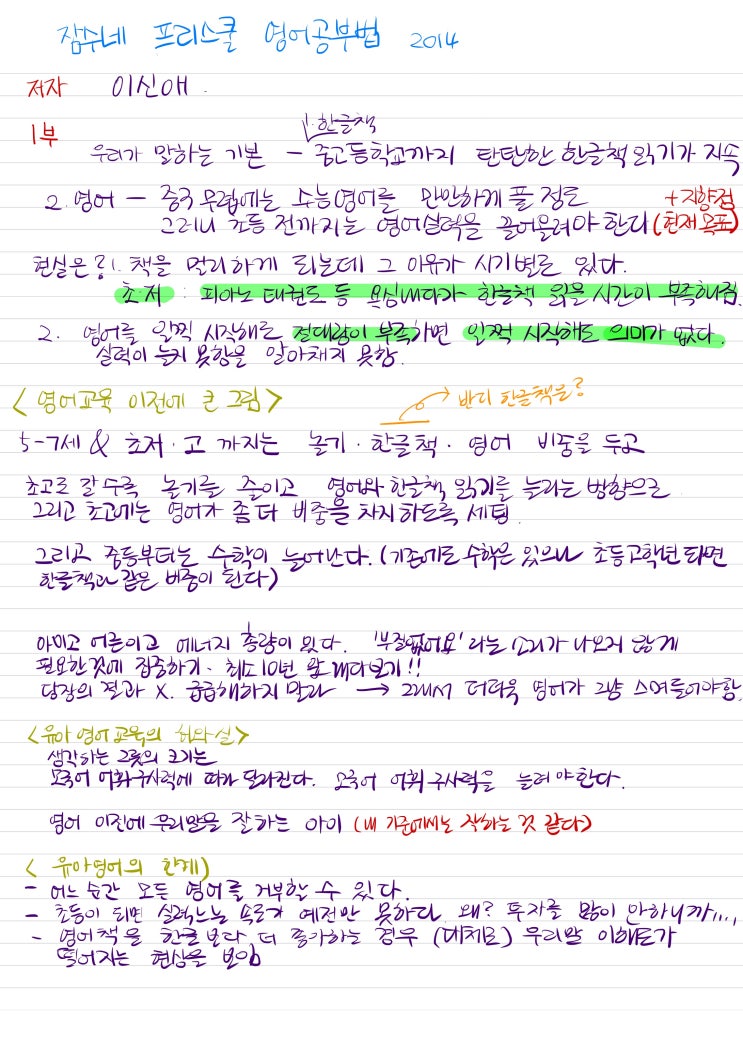 잠수네 프리스쿨 영어공부법 2014
저자 이신애.
1부
한글책
우리가 말하는 기본 - 중고등학교까지 탄탄한 한글책 읽기가 지속
2. 영어 - 중3 무렵에는 수능영어를 만만하게 풀 정도
+ 지향점
그러니 초등 전까지는 영어실력을 끌어올려야 한다 (현재목표)
현실은?!. 책을 멀리하게 되는데 그 이유가 시기별로 있다.
초저 : 피아노 태권도 등 욕심내다가 한글책 읽을 시간이 부족해짐.
2. 영어를 일찍 시작해도 절대량이 부족하면 일찍 시작해도 의미가 없다.
실력이 늘지 못함을 알아채지 못함.
<영어교육 이전에 큰 그림>
반디 한글책을?
5-7세 & 초저·고 까지는 놀기·한글책·영어 비중을 두고
초고로 갈수록 놀기를 줄이고 영어와 한글책 읽기를 늘리는 방향으로
그리고 초고에는 영어가 좀 더 비중을 차지하도록 세팅.
그리고 중등부터는 수학이 늘어난다. (기존에도 수학은 있으나 초등고학년 되면
한글책과 같은 비중이 된다)
아이고 어른이고 에너지 총량이 있다. '부질없어요' 라는 소리가 나오지 않게
필요한것에 집중하기. 최소 10년 앞 내다보기!!
당장의 결과 X. 급급해하지 말라 → 그래서 더더욱 영어가 그냥 스며들어야함.
<유아 영어교육의 허와 실>
생각하는 그릇의 크기는
모국어 어휘구사력에 따라 달라진다. 모국어 어휘 구사력을 늘려야한다.
영어 이전에 우리말을 잘하는 아이 (내 기준에서는 잘하는 것 같다)
< 유아영어의 한계)
- 어느 순간 모든 영어를 거부할 수 있다.
- 초등이 되면 실력느는 속도가 예전만 못하다. 왜? 투자를 많이 안하니까....,
- 영어책을 한글보다 더 좋아하는 경우 (대체로) 우리말 이해도가
떨어지는 현상을 보임